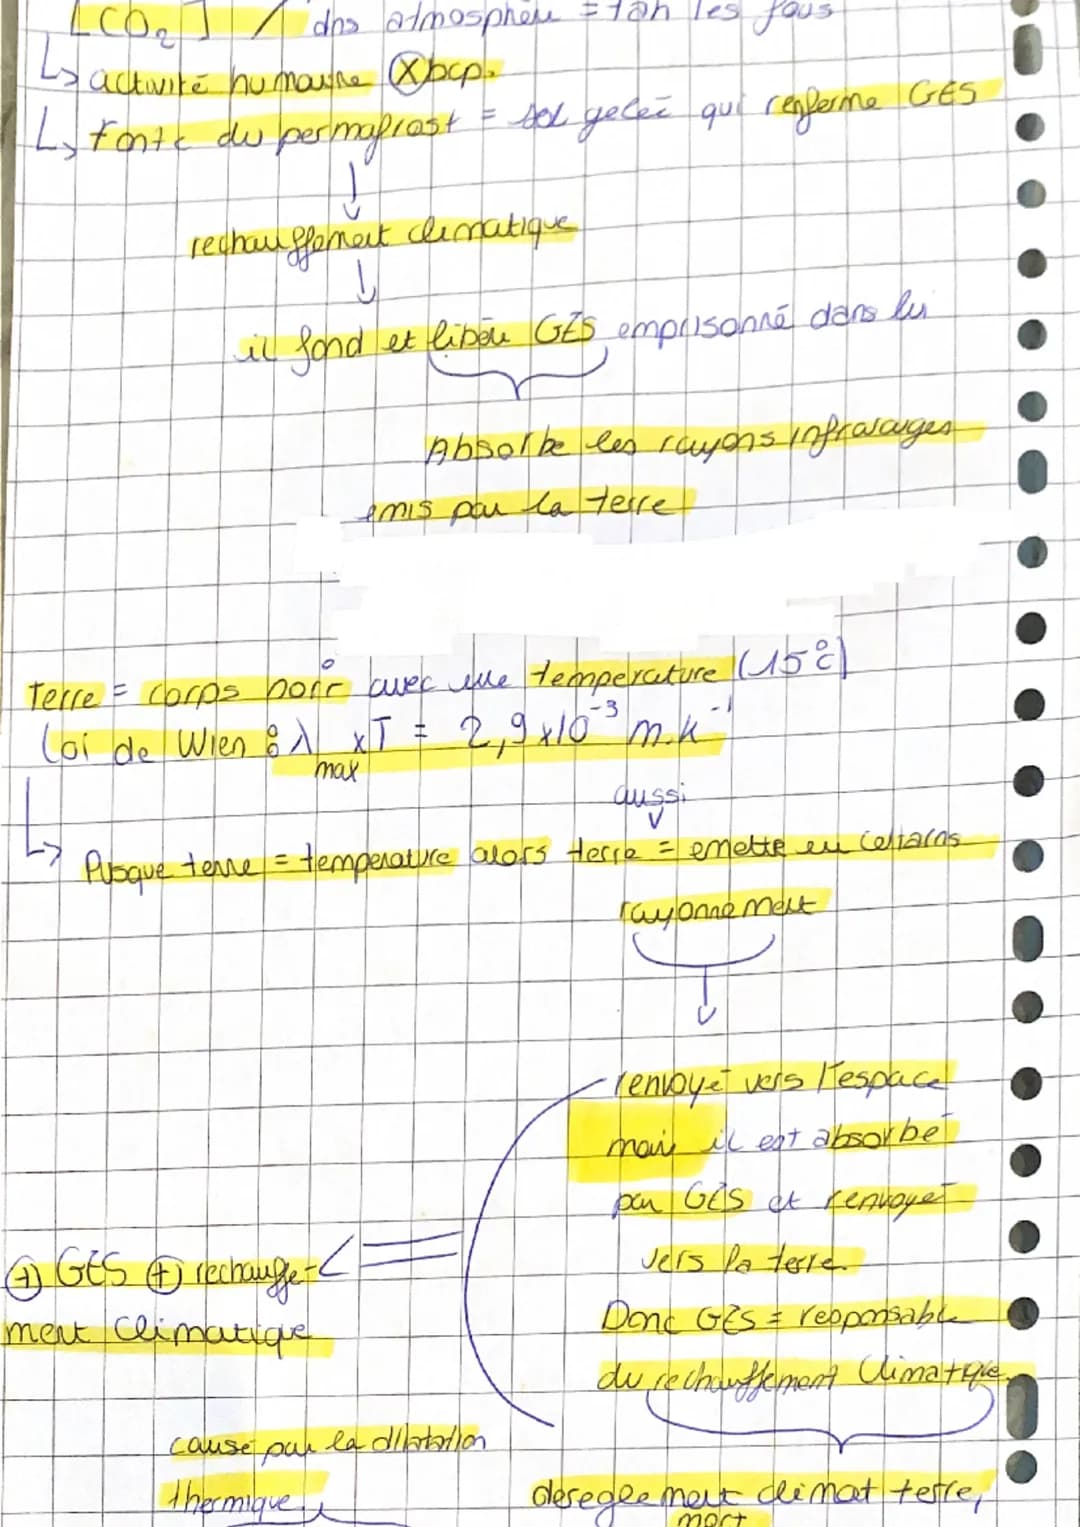 [CO₂] ↗ dns atmosphère = tah les fous
↳ activité humaine ⊗ bcp.
↳ fonte du permafrost = sol gelée qui renferme GES
↓
rechauffement climatique
↓
il fond et libère GES emprisonné dans lui
Absorbe les rayons infrarouges
émis par la terre
Terre = corps noir avec une température (15°c)
Loi de Wien : λmax x T = 2,9 x 10⁻³ m.k⁻¹
aussi
↳ Puisque terre = température alors terre = emettre eu certains
rayonnement
↓
renvoyé vers l'espace
mais il est absorbé
par GES et renvoyé
vers la terre.
⊕ GES ⊕ rechauffe-
ment climatique
Donc GES = responsable
du rechauffement climatique.
causé par la dilatation
thermique
dereglement climat terre,
mort